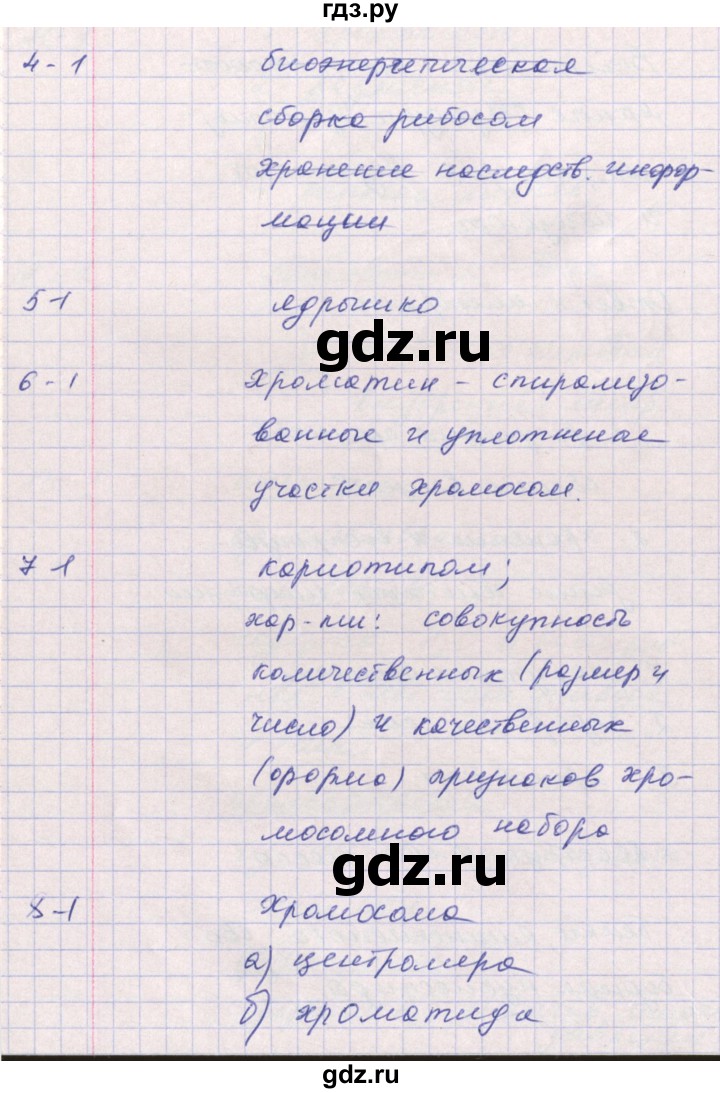 гдз.ру
4-1 биоэнергетическая
сборка рибосом
хранение наследств. инфор-
мации
5-1 ядрышко
gdz.ru
6-1 Хроматин - спирализо-
ванные и уплотненые
участки хромосом.
7-1 кариотипом;
хар-ки: совокупность
количественных (размер и
число) и качественных
(форма) признаков хро-
мосомного набора
gdz.ru
8-1 Хромосома
а) центромера
б) хроматида
gdz.ru